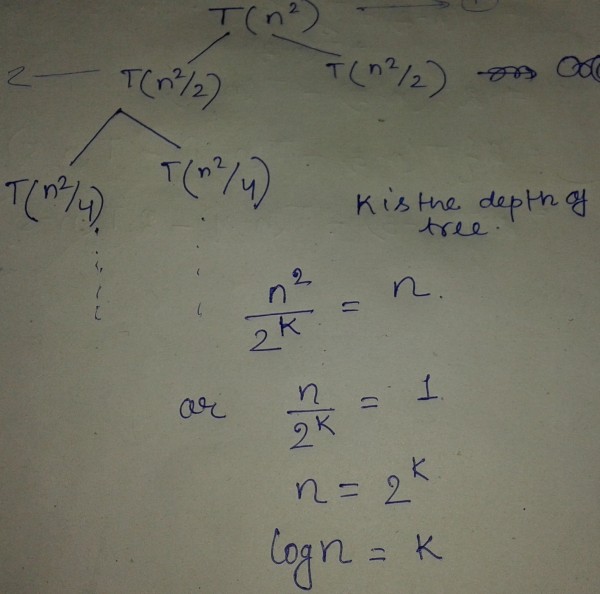 T(n²) 1
2 T(n²/2) T(n²/2)
T(n²/4) T(n²/4)
K is the depth of
tree.
n²/2^K = n.
or n/2^K = 1.
n = 2^K
log n = K